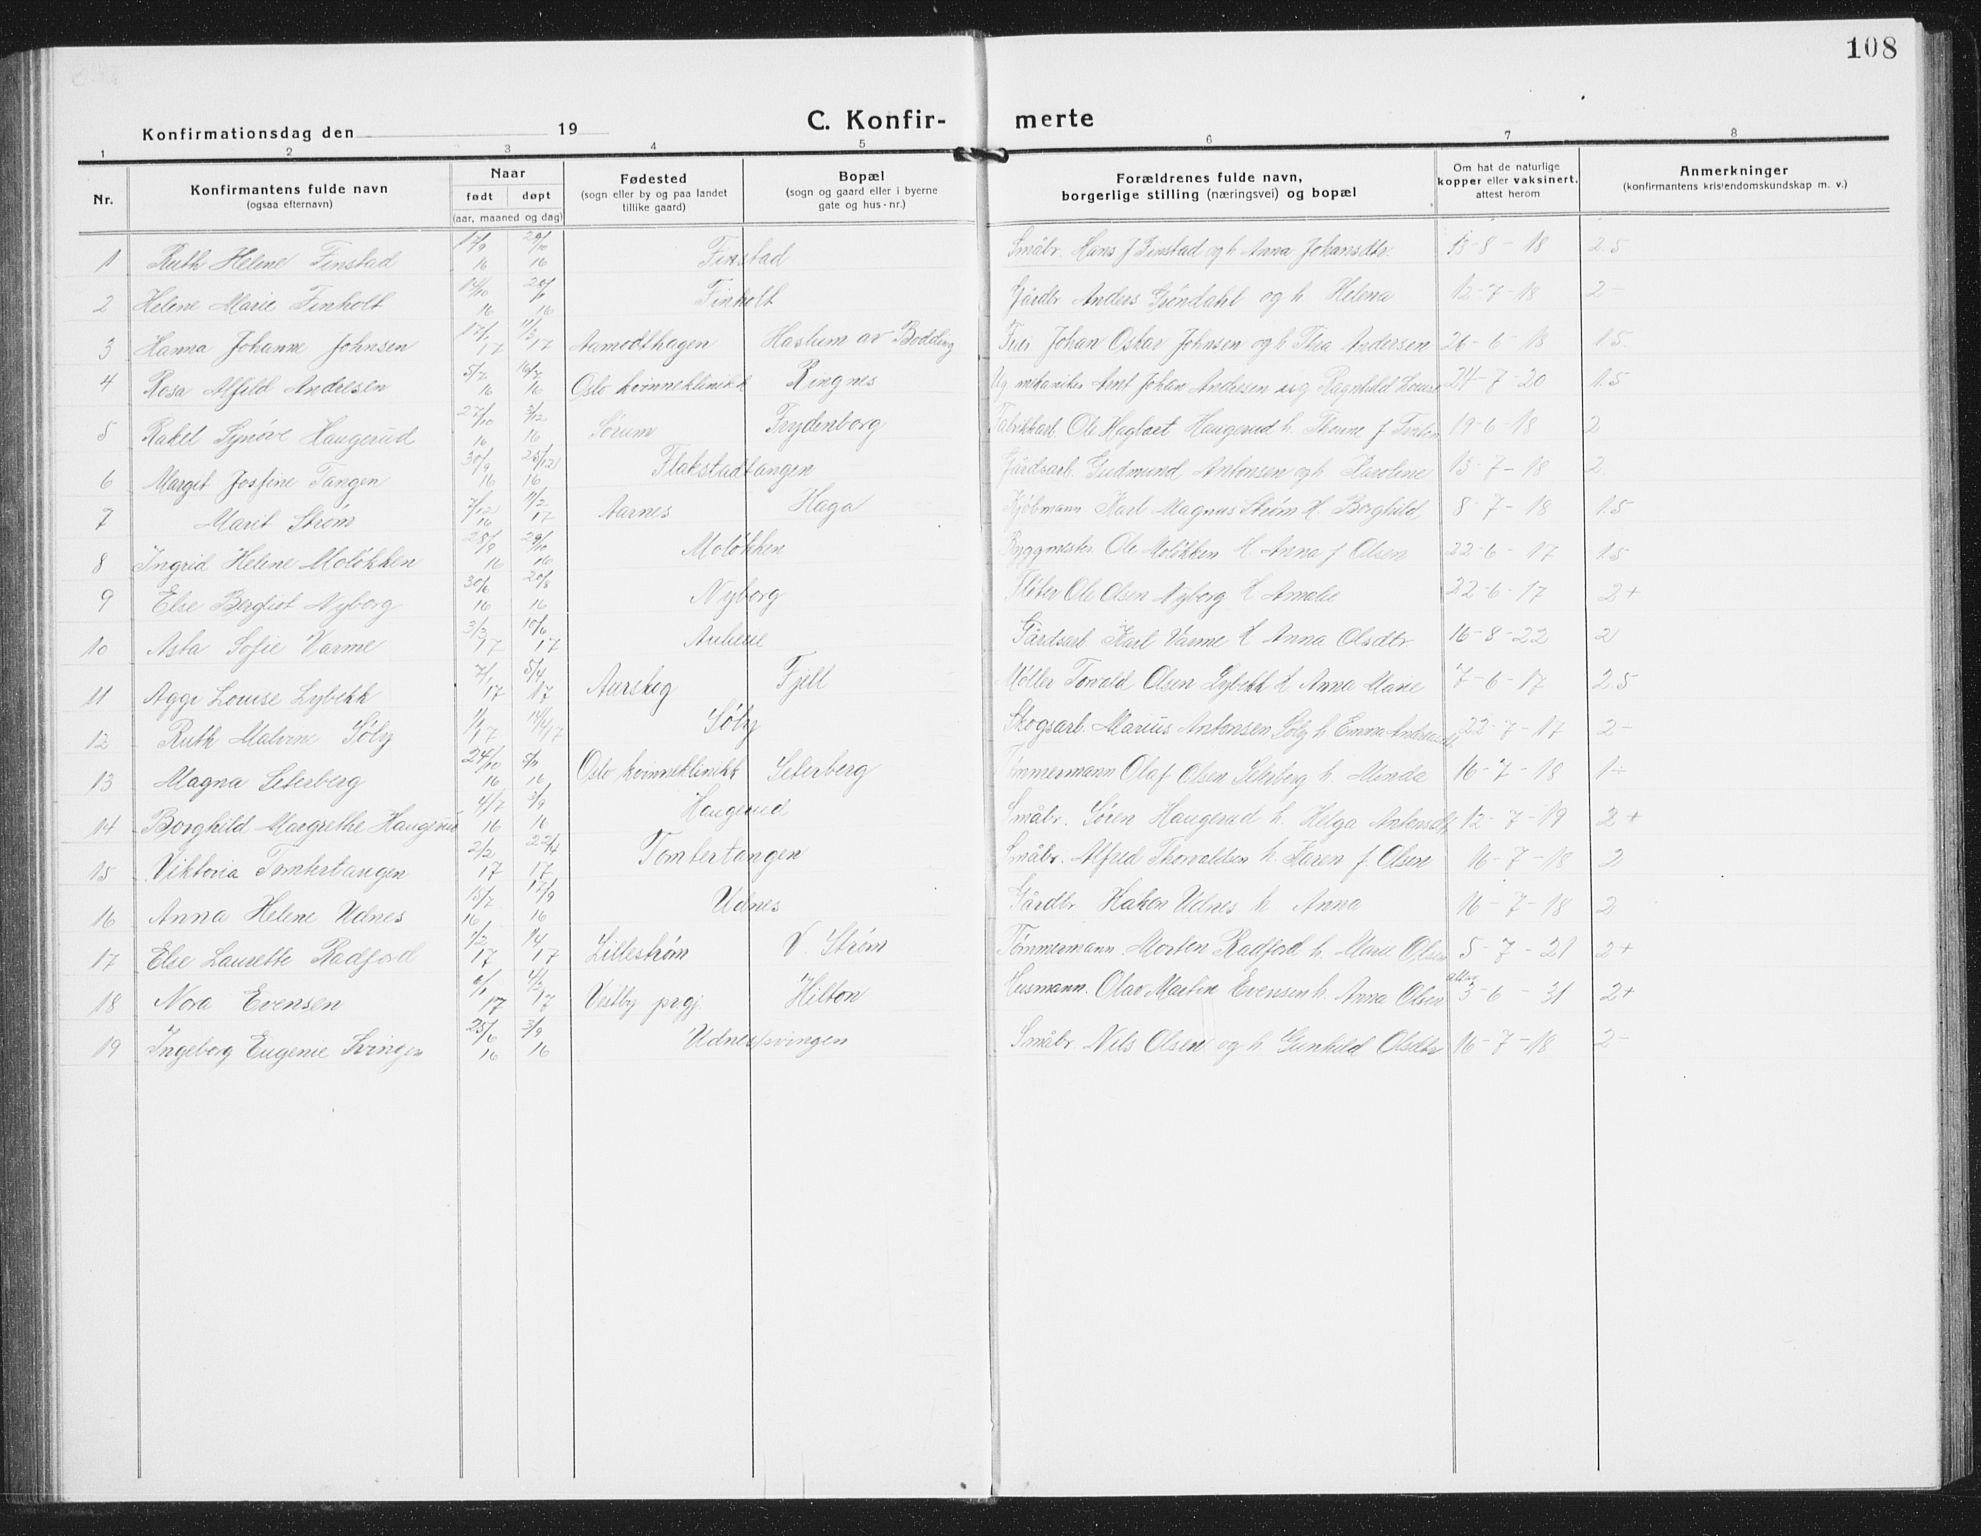 108
Konfirmationsdag den 19
C. Konfir- merte
1 2 3 4 5 6 7 8
Nr. Konfirmantens fulde navn (ogsaa efternavn) Naar født døpt (aar, maaned og dag) Fødested (sogn eller by og paa landet tillike gaard) Bopæl (sogn og gaard eller i byerne gate og hus-nr.) Forældrenes fulde navn, borgerlige stilling (næringsvei) og bopæl Om hat de naturlige kopper eller vaksinert, attest herom Anmerkninger (konfirmantens kristendomskundskap m. v.)
1 Ruth Helene Finstad 17/9 16 29/10 16 Finstad Småbr. Hans J Finstad og h Anna Johansdtr. 13-8-18 2.5
2 Helene Marie Finholt 16 16 Finholt Gårdbr Anders Gröndahl og h. Helena 12-7-18 2-
3 Hanna Johanne Johnsen 17 17 Aamodthagen Haslum av Bodding Johan Oskar Johnsen og h Thea Andersen 26-6-18 1.5
4 Rosa Alfild Andresen 5/7 16 16/7 16 Oslo kvinneklinikk Ringnes mekaniker Arnt Johan Andresen og Ragnhild Louise 24-7-20 1.5
5 Rakel Synöve Haugerud 27/10 16 3/12 16 Sörum Frydenborg Fabrikkarb. Ole Haugerud h. 19-6-18 2
6 Margit Josfine Tangen 30/9 16 25/12 16 Flakstadtangen Gårdsarb. Gudmund Antonsen og h Karolene 13-7-18 2
7 Marit Strøm 7/12 16 11/2 17 Aarnes Haga Kjöbmann Karl Magnus Strøm H. Borghild 8-7-18 1.5
8 Ingrid Helene Moløkken 28/8 16 29/10 16 Moløkken Byggmester Ole Moløkken H Anna f Olsen 22-6-17 1.5
9 Else Bergliot Nyborg 30/6 16 20/8 16 Nyborg Fløter Ole Olsen Nyborg H Amalie 22-6-17 2+
10 Asta Sofie Varme 3/3 17 10/6 17 Gårdsarb Karl Varme H Anna Olsdtr 16-8-22 2
11 Aggi Louise Lybekk 7/1 17 5/4 17 Aurskog Fjell Møller Torvald Olsen Lybekk H Anna Marie 7-6-17 2.5
12 Ruth Malvine Söby 1/1 17 17 Söby Skogsarb. Marius Antonsen Söby h Emma 22-7-17 2-
13 Magna Seterberg 24/10 16 16 Oslo kvinneklinikk Seterberg Tømmermann Olaf Olsen Seterberg h. Minda 16-7-18 1÷
14 Borghild Margrethe Haugerud 4/7 16 3/9 16 Haugerud Småbr. Sören Haugerud h. Helga Antonsdtr 12-7-19 2+
15 Viktoria Tomtertangen 2/2 17 22/4 17 Tomtertangen Småbr. Alfred Thorvaldsen h. Karen f. Olsen 16-7-18 2
16 Anna Helene Udnes 15/7 16 17/9 16 Udnes Gårdbr Håkon Udnes h Anna 16-7-18 2
17 Else Laurette Radford 1/2 17 1/4 17 Lillestrøm V. Strøm Tømmermann Morten Radford h. Marie Olsen 5-7-21 2+
18 Nora Evensen 17 17 Vestby prgj. Hilton Husmann. Olav Martin Evensen h. Anna Olsen 3-6-31 2+
19 Ingeborg Eugenie Svingen 25/6 16 3/9 16 Udnessvingen Småbr. Nils Olsen og h Gunhild Olsdtr 16-7-18 2-